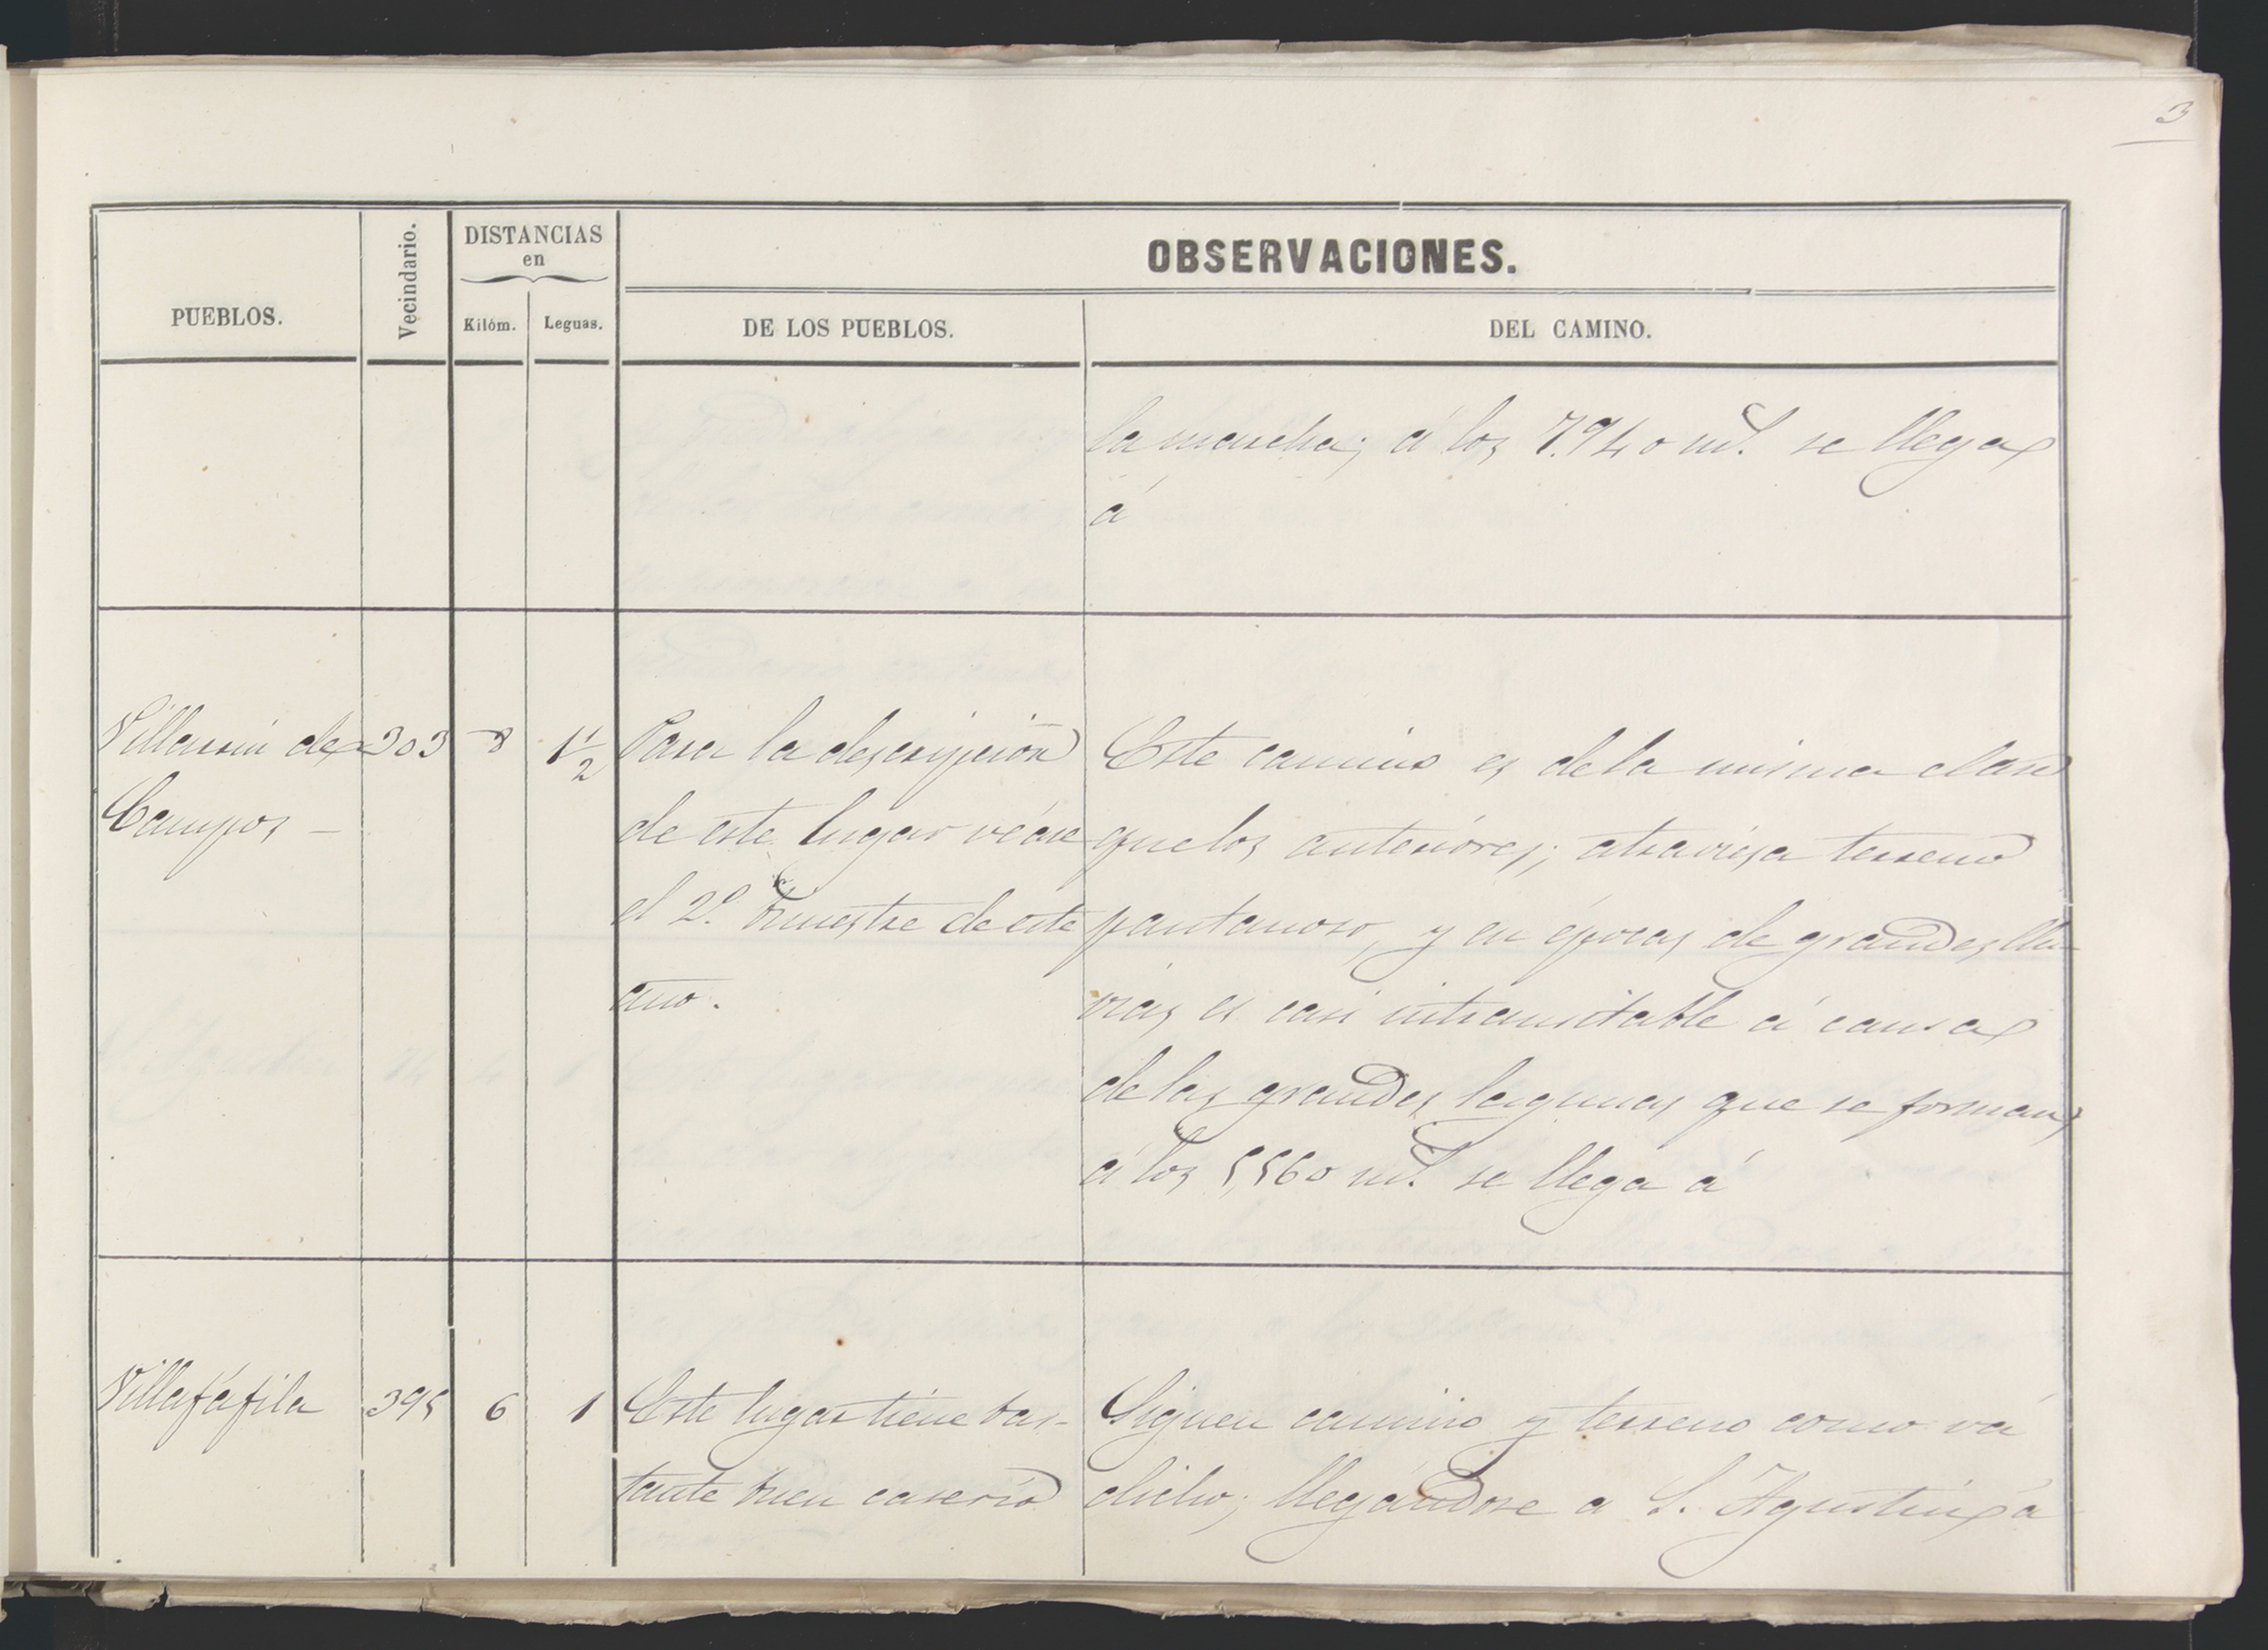 3
PUEBLOS.
Vecindario.
DISTANCIAS
en
Kilóm.
Leguas.
OBSERVACIONES.
DE LOS PUEBLOS.
DEL CAMINO.
la marcha; á los 7.940 ms. se llega
á
Villarrin de
Campos –
303
8
1 1/2
Para la descripción
de este lugar véase
el 2º. trimestre de este
año.
Este camino es de la misma clase
que los anteriores; atraviesa terreno
pantanoso, y en épocas de grandes llu-
vias es casi intransitable á causa
de las grandes lagunas que se forman;
á los 5,560 ms. se llega á
Villafáfila
395
6
1
Este lugar tiene bas-
tante buen caserío
Siguen camino y terreno como vá
dicho; llegándose a S. Agustin á